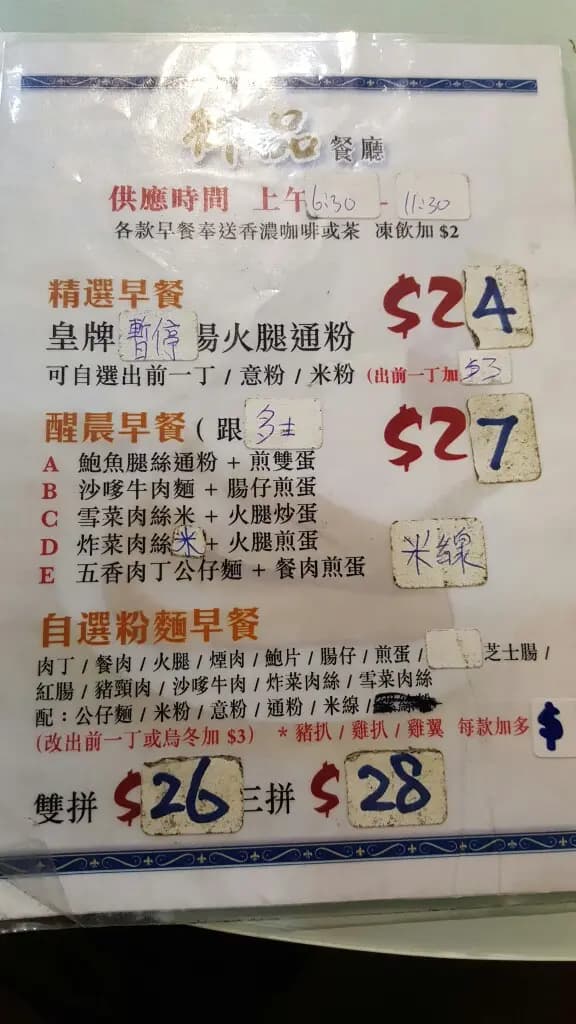 品餐廳
供應時間 上午6:30 - 11:30
各款早餐奉送香濃咖啡或茶 凍飲加 $2
精選早餐 $24
皇牌暫停湯火腿通粉
可自選出前一丁 / 意粉 / 米粉 (出前一丁加 $3
醒晨早餐 ( 跟多士 $27
A 鮑魚腿絲通粉 + 煎雙蛋
B 沙嗲牛肉麵 + 腸仔煎蛋
C 雪菜肉絲米 + 火腿炒蛋
D 炸菜肉絲米 + 火腿煎蛋
E 五香肉丁公仔麵 + 餐肉煎蛋 米線
自選粉麵早餐
肉丁 / 餐肉 / 火腿 / 煙肉 / 鮑片 / 腸仔 / 煎蛋 / 芝士腸 /
紅腸 / 豬頸肉 / 沙嗲牛肉 / 炸菜肉絲 / 雪菜肉絲
配：公仔麵 / 米粉 / 意粉 / 通粉 / 米線 /
(改出前一丁或烏冬加 $3) * 豬扒 / 雞扒 / 雞翼 每款加多 $
雙拼 $26 三拼 $28